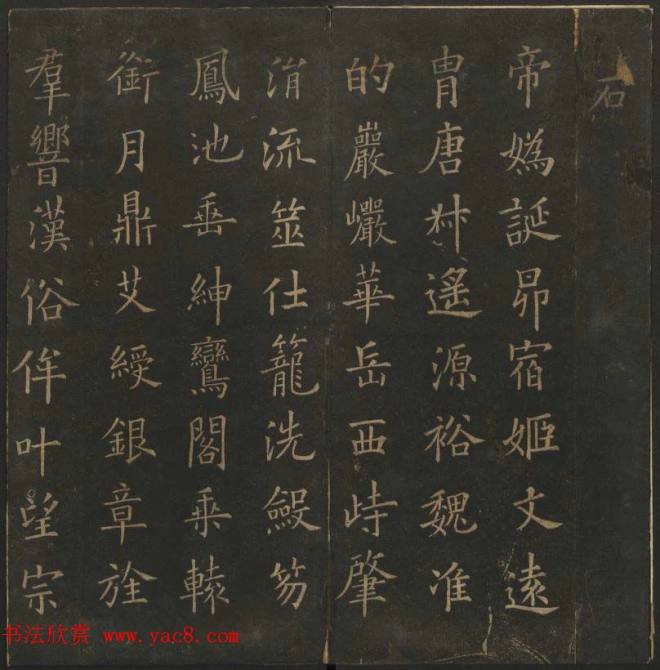 石
帝媯誕昴宿姬文遠
胄唐叔遥源裕魏准
的巖巖華岳西峙肇
㳙流筮仕籠洗毊笏
鳳池垂紳鸞閣乘轅
銜月鼎艾綬銀章旌
羣響漢俗侔叶望宗
书法欣赏 www.yac8.com